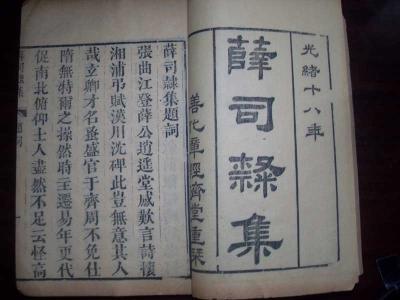 光緒十八年
薛司隸集
善化章經濟堂重栞
薛司隸集題詞
張曲江登薛公逍遙堂感歎言詩懷
湘浦弔賦漢川沈碑此豈無意其人
哉玄卿才名盛官于齊周不免仕
隋無特爾之操然時主遷易年更代
促南北俯仰士人盡然不足云怪高
題詞